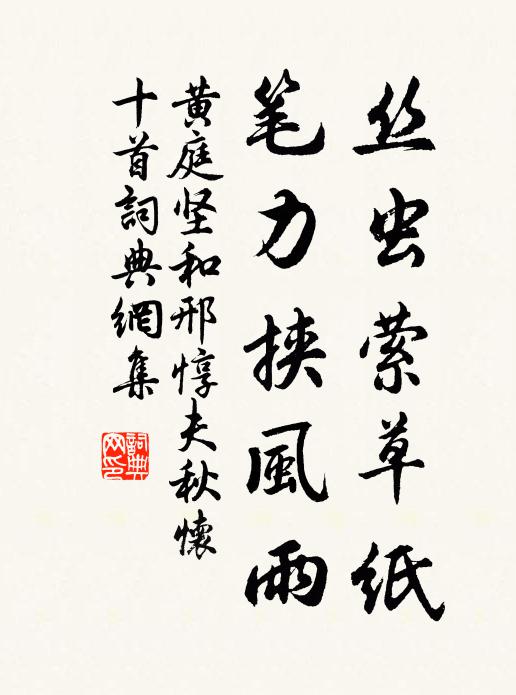 丝虫萦草纸
笔力挟風雨
黄庭坚和邢惇夫秋懷
十首詞典網集
詞典网印